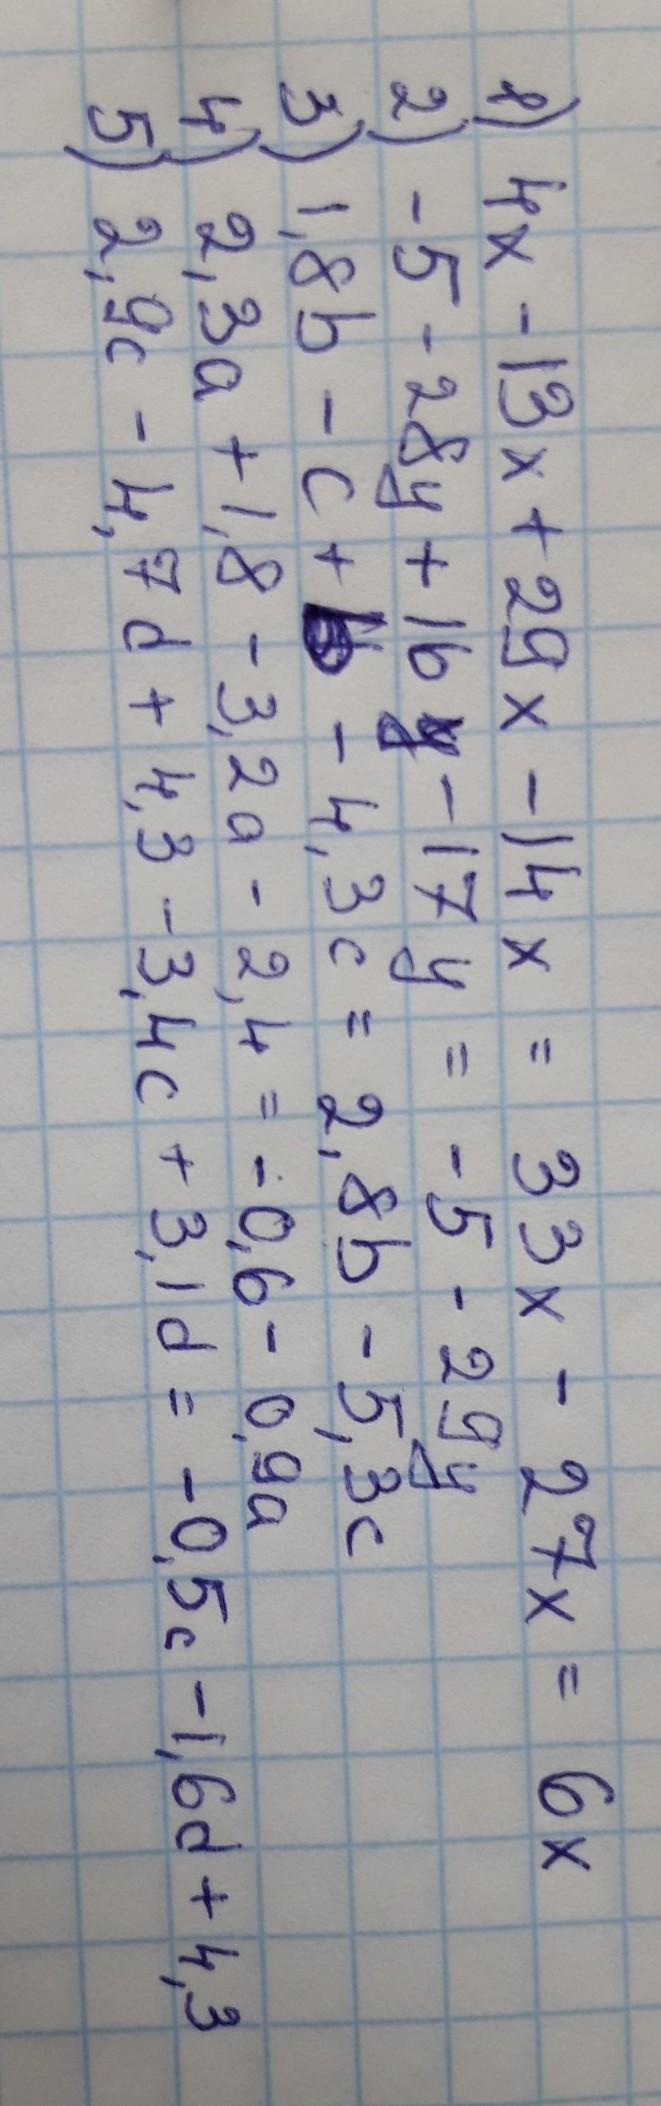 1) 4x - 13x + 29x - 14x = 33x - 27x = 6x
2) -5 - 28y + 16y - 17y = -5 - 29y
3) 1,8b - c + b - 4,3c = 2,8b - 5,3c
4) 2,3a + 1,8 - 3,2a - 2,4 = -0,6 - 0,9a
5) 2,9c - 4,7d + 4,3 - 3,4c + 3,1d = -0,5c - 1,6d + 4,3